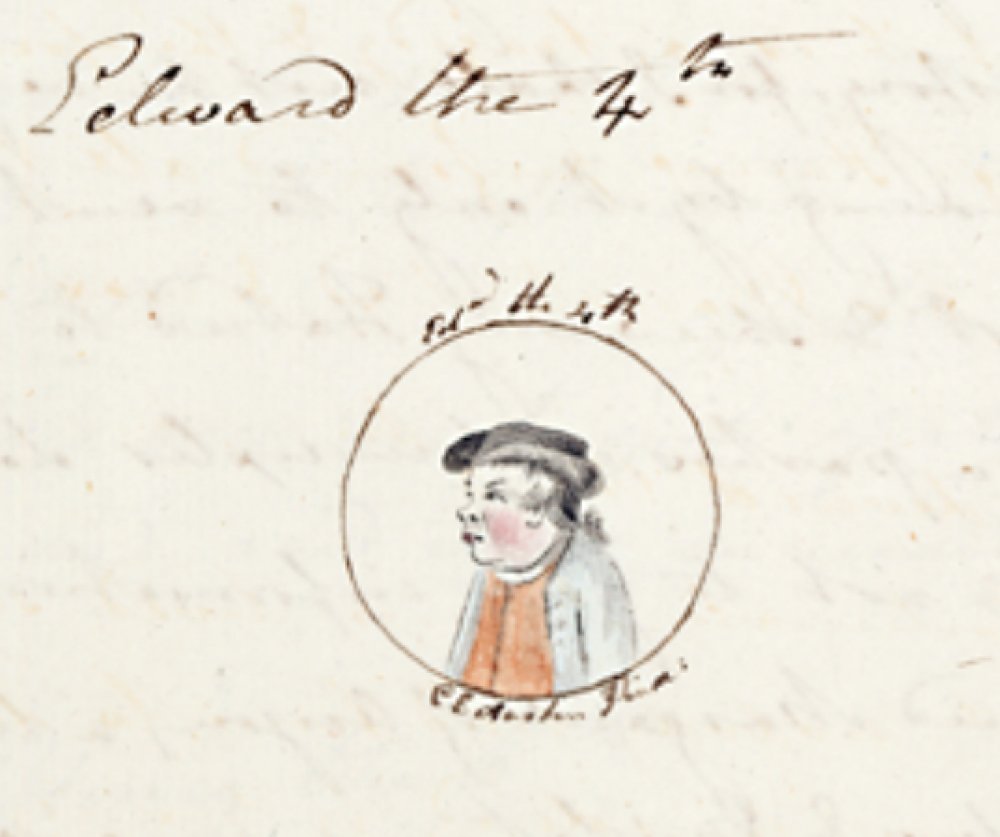 Edward the 4th
Edd the 4th
C E Austen Pinx